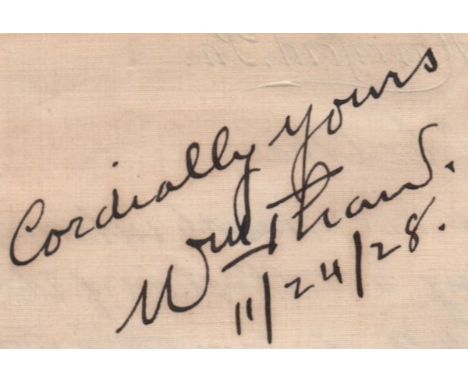 Cordially yours
Wm Thaw.
11/24/28.